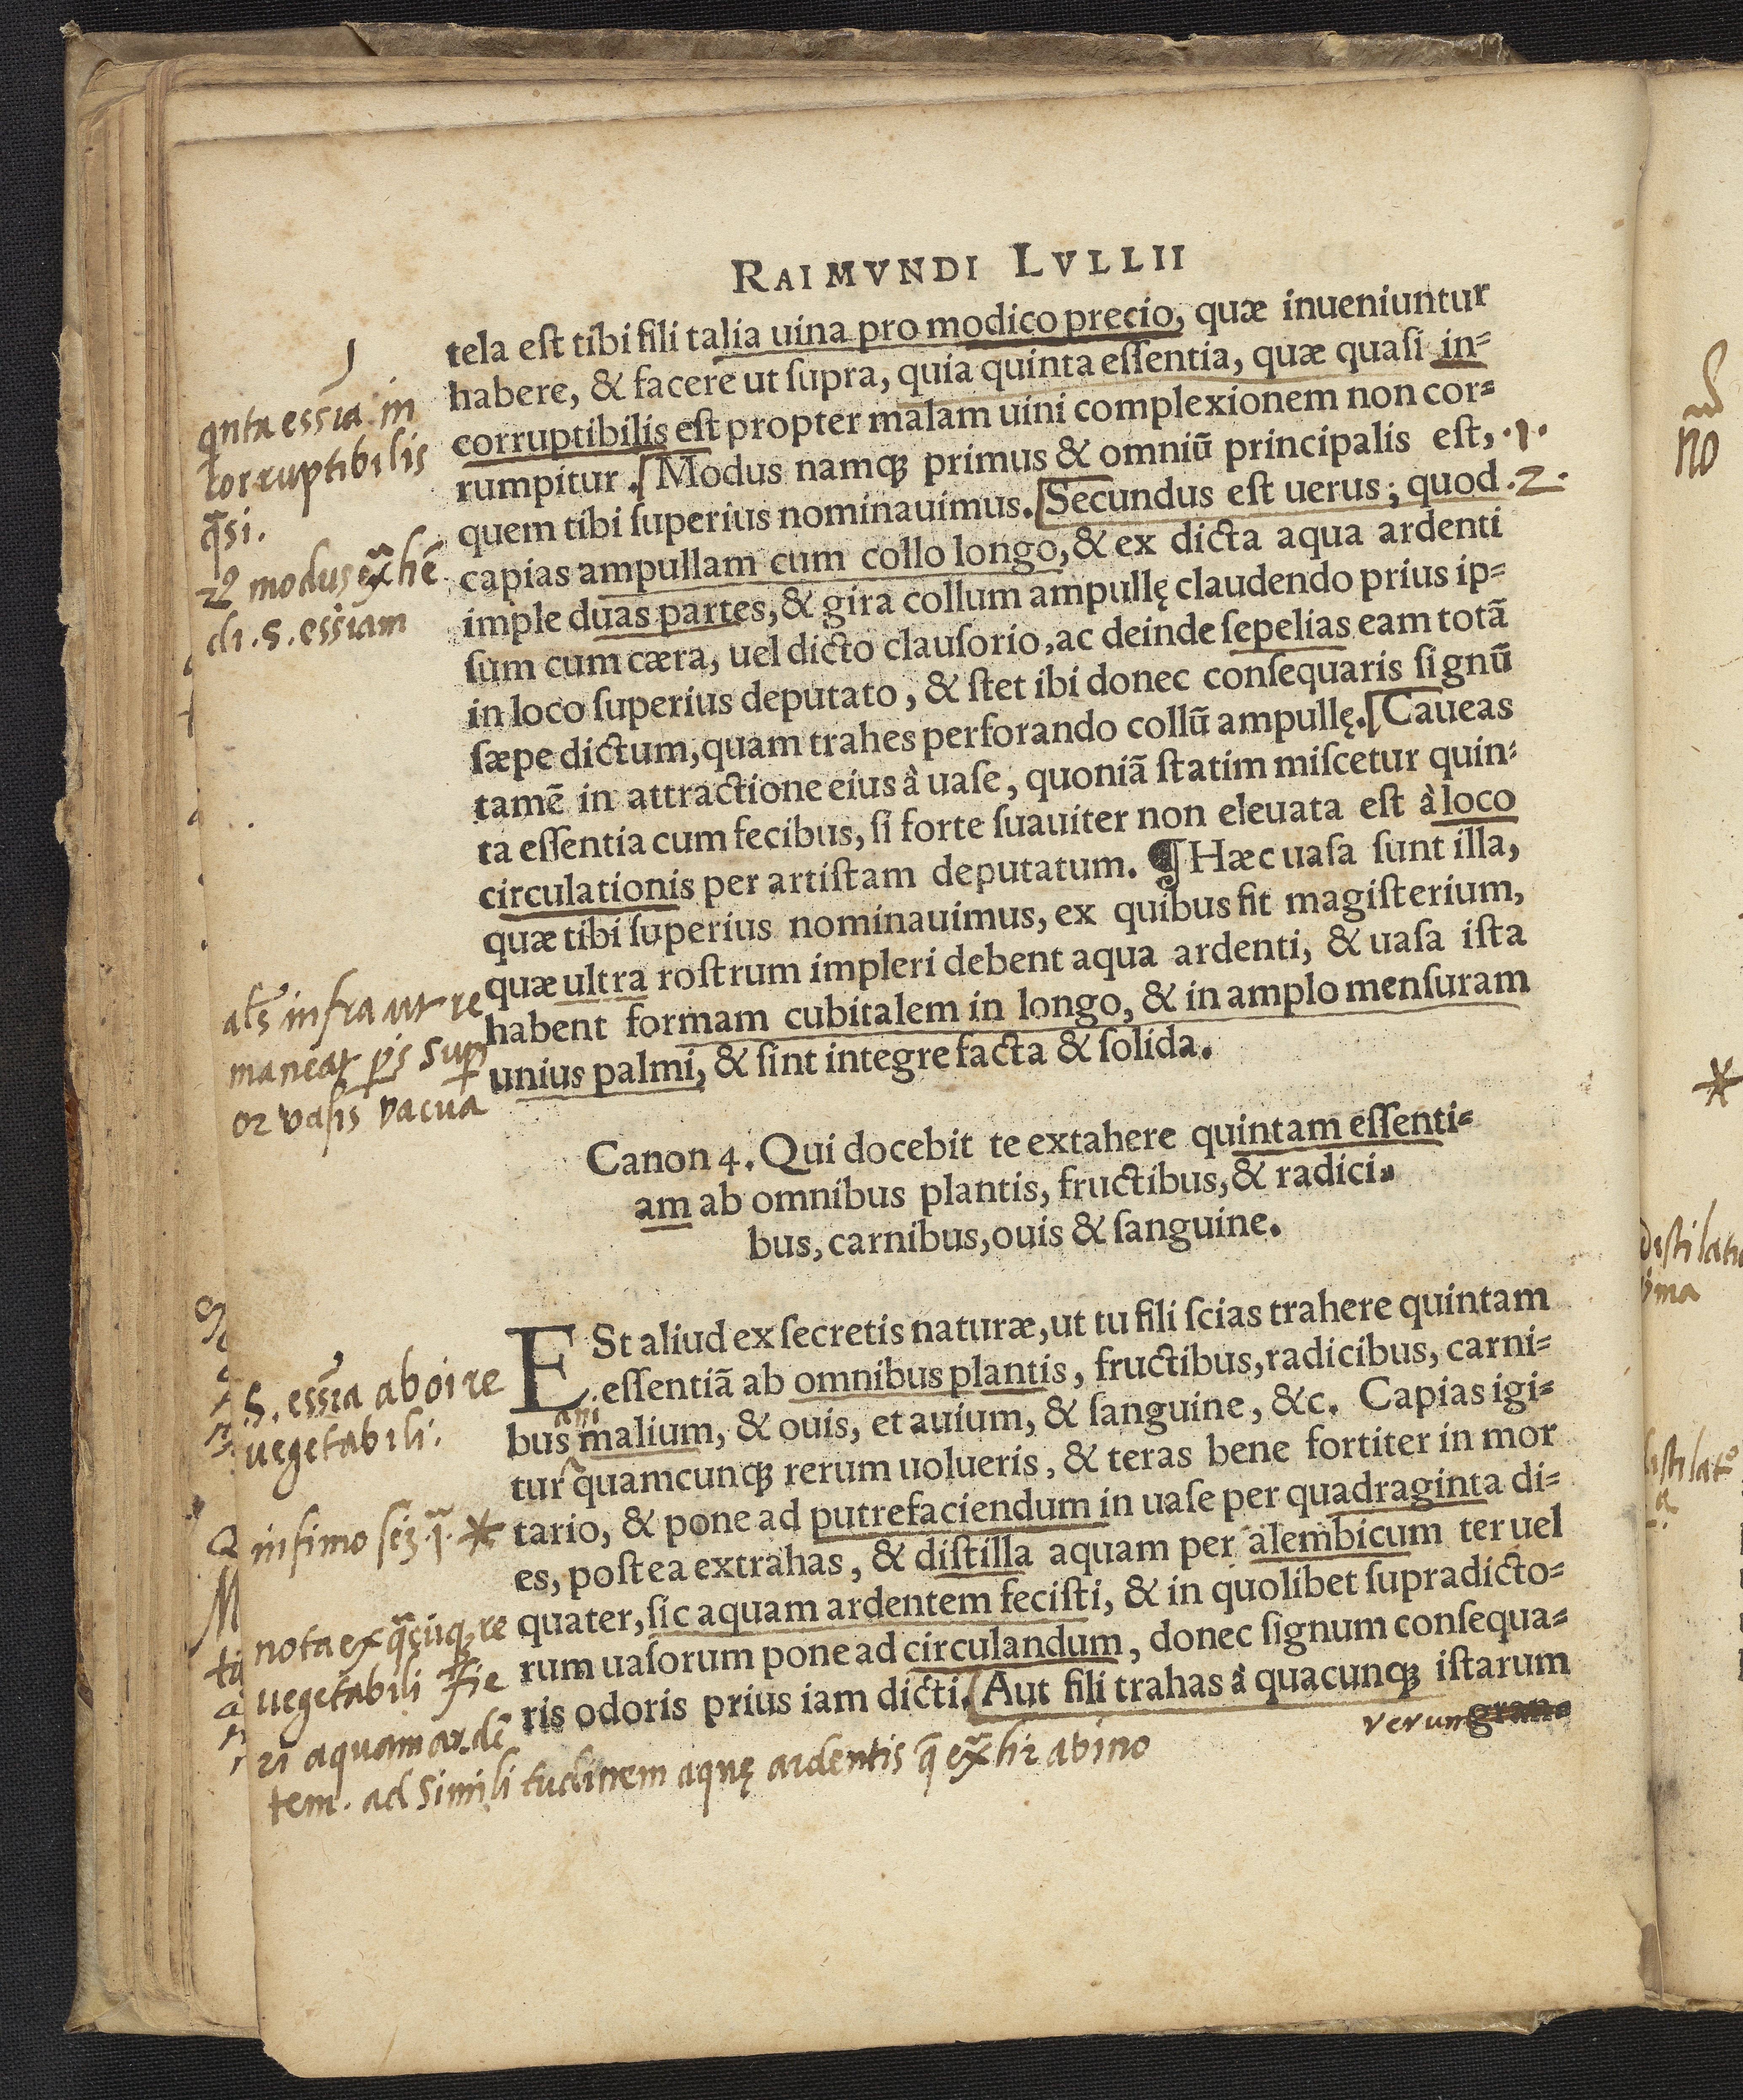 RAIMVNDI LVLLII
tela eſt tibi fili talia uina pro modico precio, quæ inueniuntur
habere, & facere ut ſupra, quia quinta eſſentia, quæ quaſi in=
corruptibilis eſt propter malam uini complexionem non cor=
rumpitur. Modus namqꝫ primus & omniũ principalis eſt, ·1·
quem tibi ſuperius nominauimus. Secundus eſt uerus; quod ·2·
capias ampullam cum collo longo, & ex dicta aqua ardenti
imple duas partes, & gira collum ampullę claudendo prius ip=
ſum cum cæra, uel dicto clauſorio, ac deinde ſepelias eam totã
in loco ſuperius deputato, & ſtet ibi donec conſequaris ſignũ
ſæpe dictum, quam trahes perforando collũ ampullę. Caueas
tamẽ in attractione eius à uaſe, quoniã ſtatim miſcetur quin=
ta eſſentia cum fecibus, ſi forte ſuauiter non eleuata eſt à loco
circulationis per artiſtam deputatum. ¶ Hæc uaſa ſunt illa,
quæ tibi ſuperius nominauimus, ex quibus fit magiſterium,
quæ ultra roſtrum impleri debent aqua ardenti, & uaſa iſta
habent formam cubitalem in longo, & in amplo menſuram
unius palmi, & ſint integre facta & ſolida.
Canon 4. Qui docebit te extahere quintam eſſenti=
am ab omnibus plantis, fructibus, & radici=
bus, carnibus, ouis & ſanguine.
ESt aliud ex ſecretis naturæ, ut tu fili ſcias trahere quintam
eſſentiã ab omnibus plantis, fructibus, radicibus, carni=
ani
bus malium, & ouis, et auium, & ſanguine, &c. Capias igi=
tur quamcunqꝫ rerum uolueris, & teras bene fortiter in mor
tario, & pone ad putrefaciendum in uaſe per quadraginta di=
es, poſtea extrahas, & diſtilla aquam per alembicum ter uel
quater, ſic aquam ardentem feciſti, & in quolibet ſupradicto=
rum uaſorum pone ad circulandum, donec ſignum conſequa=
ris odoris prius iam dicti. Aut fili trahas à quacunqꝫ iſtarum
rerum gran=
qnta essĩa in
corruptibilis
q̃si.
2ꝰ modus ex̃hẽ
di .5. essiam
al̃s infra ut re
maneat ps sup
or vasis vacua
.5. essĩa ab oi re
uegetabili.
in fimo *
nota ex q̃cũqꝫ re
uegetabili fie
ri aquam ardẽ
tem. ad similitudinem aquę ardentis q̃ ex̃hr a vino
no
*
distilatio
ima